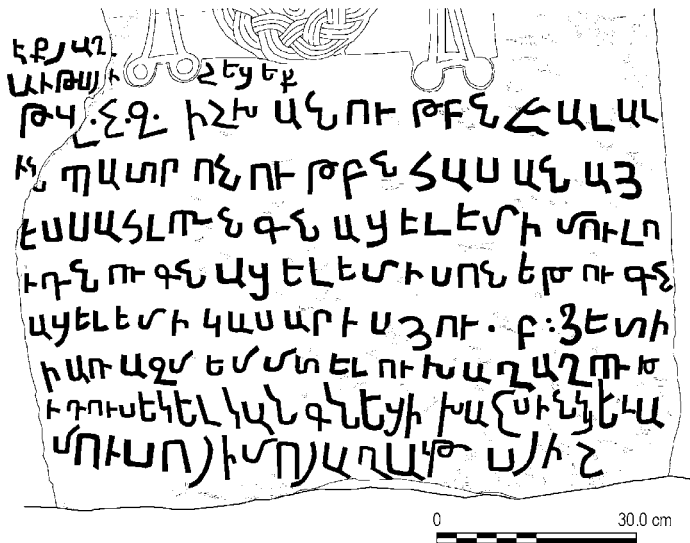 ԷՔՅԱՂ.
ԱՒԹԱՅԻ ՇԵՑԵՔ
ԹՎ ՉԶ. ԻՇԽԱՆՈՒԹԲՆ ՋԱԼԱԼ
ԻՆ ՊԱՏՐՈՆՈՒԹԲՆ ՀԱՍԱՆԱՅ
ԵՍ ՍԱՀԼՈՒՆ ԳՆԱՑԵԼ ԷՄ Ի ՄՈՒԼՈ
ՒԴՆՈՒ ԳՆԱՑԵԼ ԵՄ Ի ՍՈՆԵԹՈՒ ԳՆ
ԱՑԵԼ ԵՄ Ի ԿԱՍԱՐԻՍ ՅՈՒ. Բ: ՅԵՏԻ
Ի ԱՌԱԶՄ ԵՄ ՄՏԵԼ ՈՒ ԽԱՂԱՂՈՒԹ
Ի ԴՈՒՍ ԵԿԵԼ ԿԱՆԳՆԵՑԻ ԽԱՉՍ ԻՆՁ ԵՒ Ա
ՄՈՒՍՈՅ Ի ՄՈՅ ԱՂԱՒԹՍ ՅԻՇ
0 30.0 cm